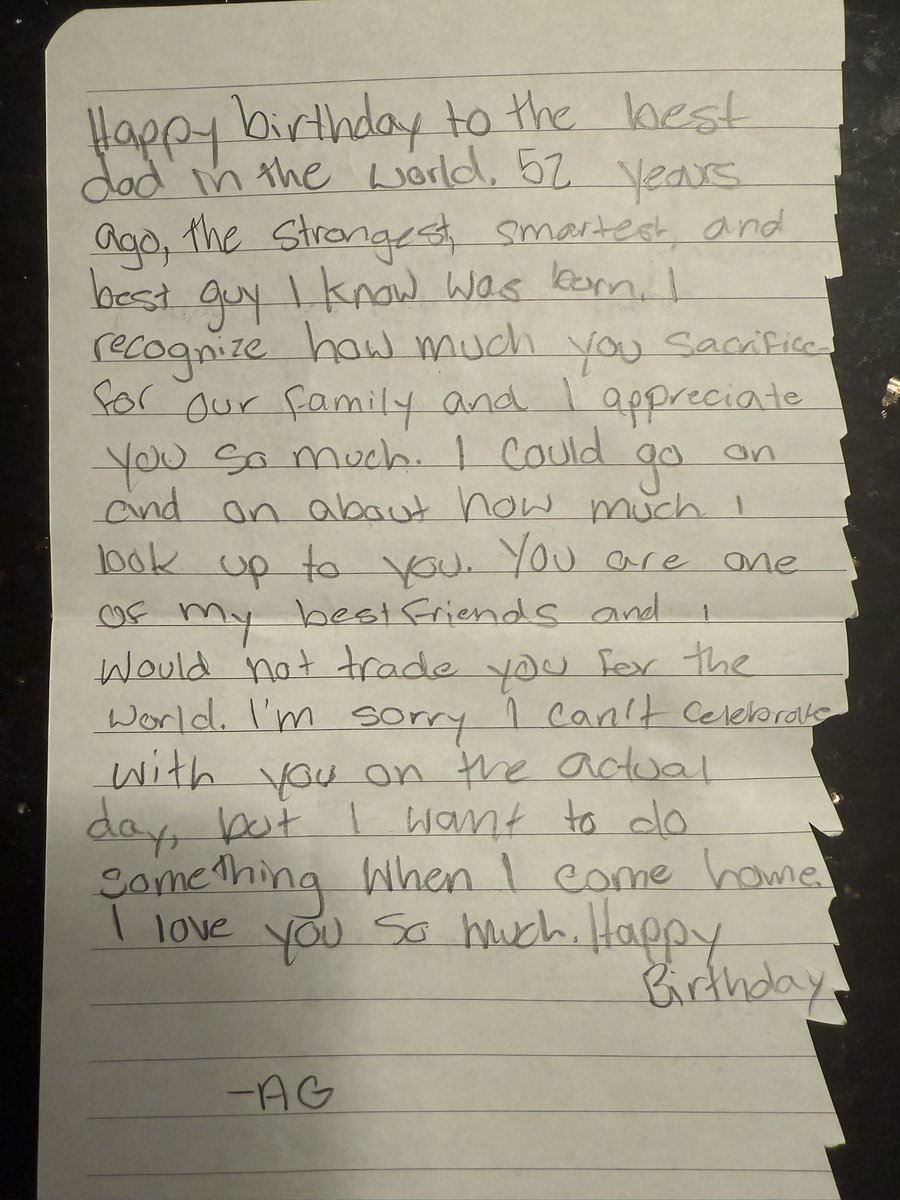 Happy birthday to the best
dad in the world. 52 years
ago, the strongest, smartest, and
best guy I know was born. I
recognize how much you sacrifice
for our family and I appreciate
you so much. I could go on
and on about how much I
look up to you. You are one
of my best friends and I
would not trade you for the
world. I'm sorry I can't celebrate
with you on the actual
day, but I want to do
something when I come home.
I love you so much. Happy
Birthday
-AG